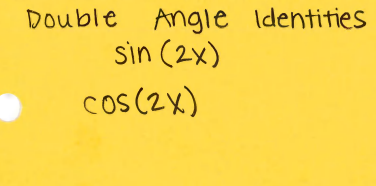 Double Angle Identities
sin (2x)
cos (2x)